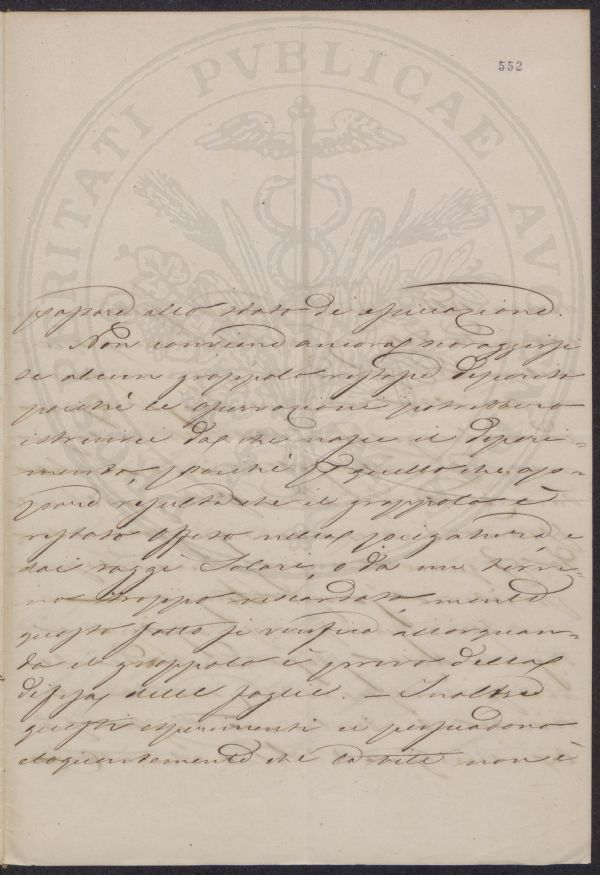 552
PROSPERITATI PVBLICAE AVGENDAE
passare allo stato di essiccazione.
Non conviene ancora scoraggirsi
se alcun grappolo restasse deperito
poichè le osservazioni potrebbero
istruirci da che nasce il deperi-
mento, poichè p quello che ap-
pare risulta che il grappolo è
restato offeso nella piegatura e
dai raggi Solari, o da un terre-
no troppo riscaldato, mentre
questo fatto si verifica allorquan-
do il grappolo è privo della
difesa delle foglie. — Inoltre
questi esperimenti ci persuadono
eloquentemente che la vite non è